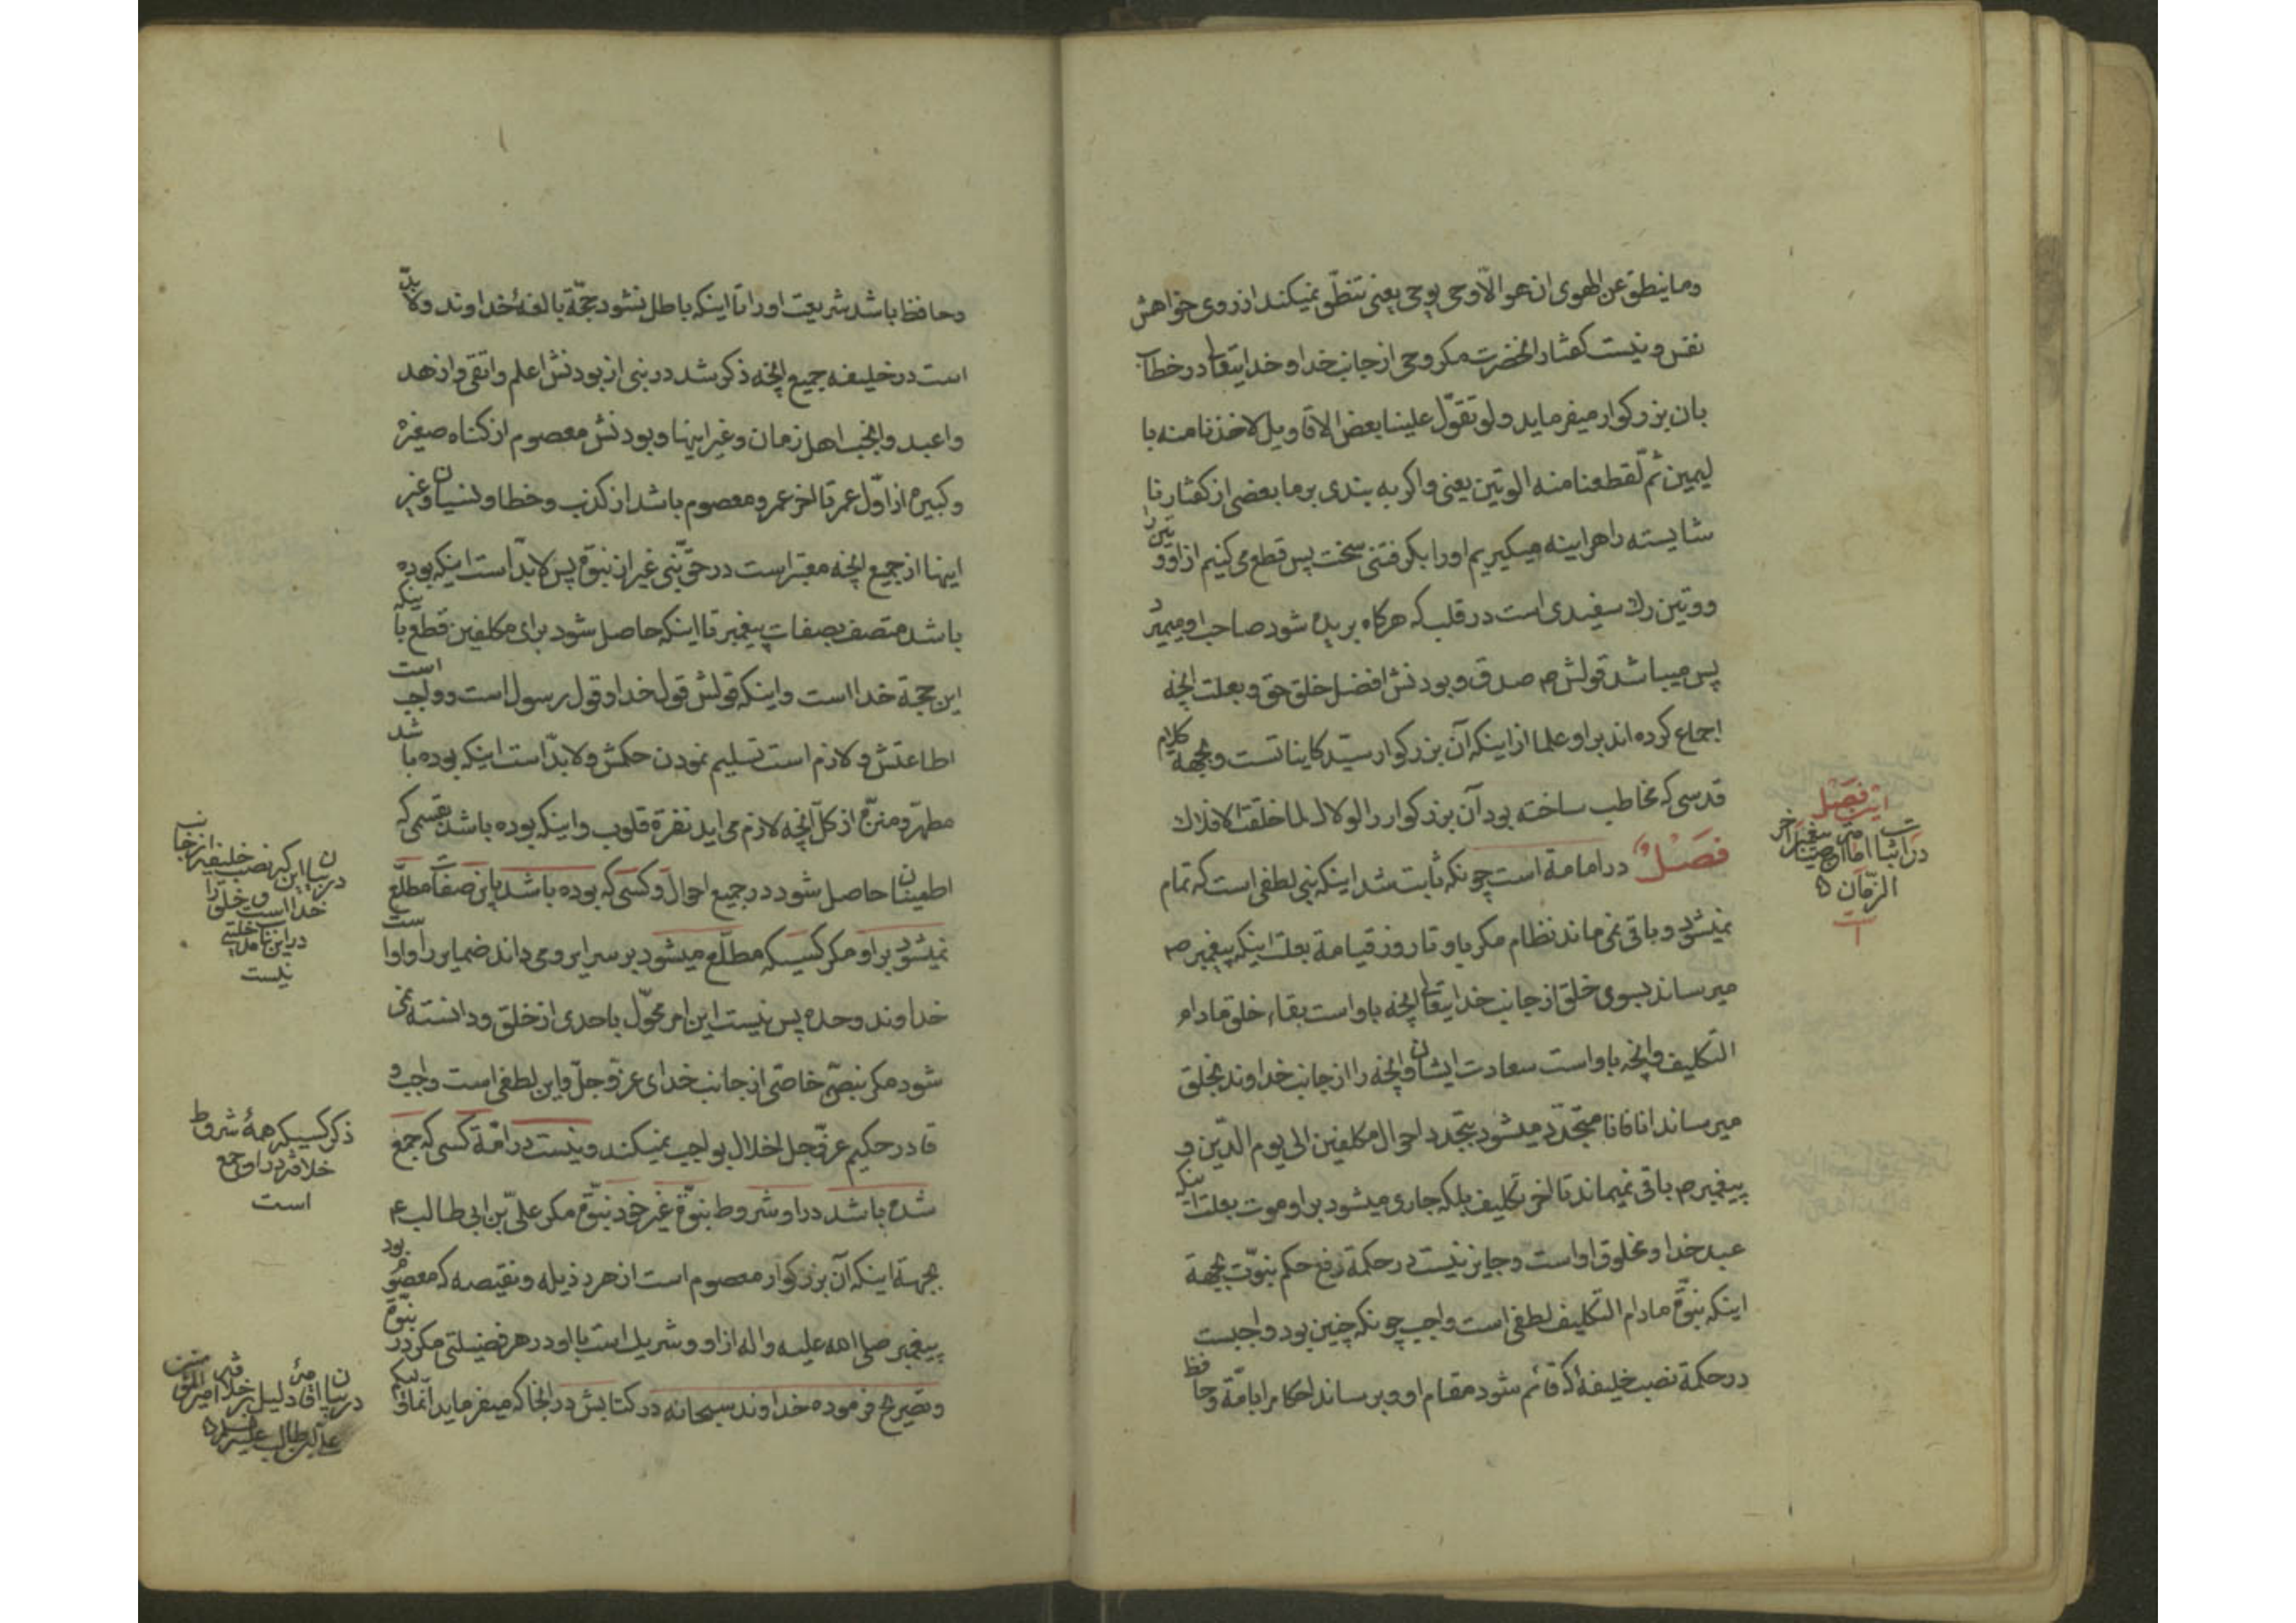 وما ینطق عن الهوی ان هو الّا وحی یوحی یعنی تنطّق نمیکند از روی خواهش
نفس و نیست کفتار انحضرت مکر وحی از جانب خدا و خدایتعالی در خطاب
بان بزرکوار میفرماید ولو تقوّل علینا بعض الاقاویل لاخذنا منه با
لیمین ثمّ لقطعنا منه الوتین یعنی واکر به بندی بر ما بعضی از کفتار نا
شایسته را هراینه میکیریم اورا بکرفتنی سخت پس قطع می کنیم از او وتین را
ووتین رك سفیدی است در قلب که هرکاه بریده شود صاحب او میمیرد
پس میباشد قولش ص صدق و بودنش افضل خلق حق و بعلت انچه
اجماع کرده اند بر او علما از اینکه آن بزرکوار سیّد کایناتست و بجهة کلام
قدسی که مخاطب ساخته بود آن بزرکوار را لولاك لما خلقت الافلاك
فصل در امامة است چونکه ثابت شد اینکه نبی لطفی است که تمام
نمیشود و باقی نمی ماند نظام مکر باو تا روز قیامة بعلت اینکه پیغمبر ص
میرساند بسوی خلق از جانب خدایتعالی انچه باو است بقاء خلق مادام
التکلیف وانچه باو است سعادت ایشان وانچه را از جانب خداوند بخلق
میرساند انا فانا متجدّد میشود بتجدد احوال مکلفین الی یوم الدّین و
پیغمبر ص باقی نمیماند تا اخر تکلیف بلکه جاری میشود بر او موت بعلت اینکه
عبد خدا و مخلوق او است و جایز نیست در حکمة رفع حکم نبوّت بجهة
اینکه نبوّة مادام التکلیف لطفی است واجب چونکه چنین بود واجبست
در حکمة نصب خلیفه که قائم شود مقام او و برساند احکام را بامّة وحافظ
این فصل
در اثبات امامت اوصیای پیغمبر اخر
الزّمان
است
وحافظ باشد شریعت اورا تا اینکه باطل نشود حجّة بالغهٔ خداوند ولابدّ
است در خلیفه جمیع انچه ذکر شد در نبی از بودنش اعلم واتقی وازهد
واعبد وانجب اهل زمان وغیر اینها و بودنش معصوم از کناه صغیره
وکبیره از اوّل عمر تا اخر عمر و معصوم باشد از کذب و خطا و نسیان وغیر
اینها از جمیع انچه معتبر است در حقّ نبی غیر از نبوّة پس لابدّ است اینکه بوده
باشد متصف بصفات پیغمبر تا اینکه حاصل شود برای مکلفین قطع باینکه
این حجة خدا است واینکه قولش قول خدا و قول رسول است و واجب است
اطاعتش ولازم است تسلیم نمودن حکمش ولابدّ است اینکه بوده باشد
مطهّر و منزّه از کلّ انچه لازم می اید نفرة قلوب واینکه بوده باشد بقسمی که
اطمینان حاصل شود در جمیع احوال و کسی که بوده باشد باین صفات مطلّع
نمیشود بر او مکر کسیکه مطلّع میشود بر سرایر و می داند ضمایر را و اوا ست
خداوند وحده پس نیست این امر محوّل باحدی از خلق و دانسته نمی
شود مکر بنصّ خاصّی از جانب خدای عزّ وجلّ واین لطفی است واجب و
قادر حکیم عزّ وجل اخلال بواجب نمیکند و نیست در امّة کسی که جمع
شده باشد در او شروط نبوّة غیر خود نبوّة مکر علیّ بن ابی طالب ع
بجهة اینکه آن بزرکوار معصوم است از هر رذیله و نقیصه که معصوم بود
پیغمبر صلی الله علیه و اله از او و شریك است با او در هر فضیلتی مکر در نبوّة
وتصریح فرموده خداوند سبحانه در کتابش در انجا که میفرماید انّما ولیکم
در بیان این که نصب خلیفه از جانب
خدا است و خلق را
در این مدخلیتی
نیست
ذکر کسیکه همهٔ شروط
خلافة در او جمع
است
در بیان اقامهٔ دلیل بر خلافة امیر المؤمنین
علی بن ابیطالب علیه السلام